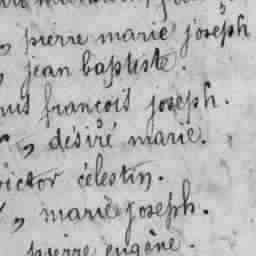 , pierre marie joseph
, jean baptiste.
françois joseph.
, désiré marie.
victor célestin.
, marie joseph.
pierre eugène.